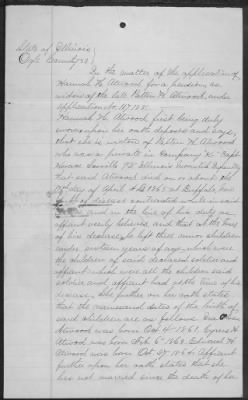 State of Illinois
Ogle County ss.
In the matter of the application of
Hannah H. Atwood for a pension as
widow of the late H. Atwood, under
application No.
Hannah H. Atwood first being duly
sworn upon her oath deposes and says,
that she is widow of H. Atwood
who was a private in Company Capt
Illinois Mounted
that said Atwood died on or about the
day of April A.D. 1865 at Buffalo,
of disease contracted while in said
and in the line of his duty as
affiant verily believes and that at the time
of his decease, he left three minor children
under sixteen years of age, who were
the children of said deceased soldier and
affiant which were all the children said
soldier and affiant had at the time of his
decease. She further on her oath states
that the names and dates of the birth of
said children are as follows
Atwood was born Oct 4th 1861. Cyrus H.
Atwood was born Feb 6th 1863. Edward H.
Atwood was born Oct 1864. Affiant
further upon her oath states that she
has not married since the death of her